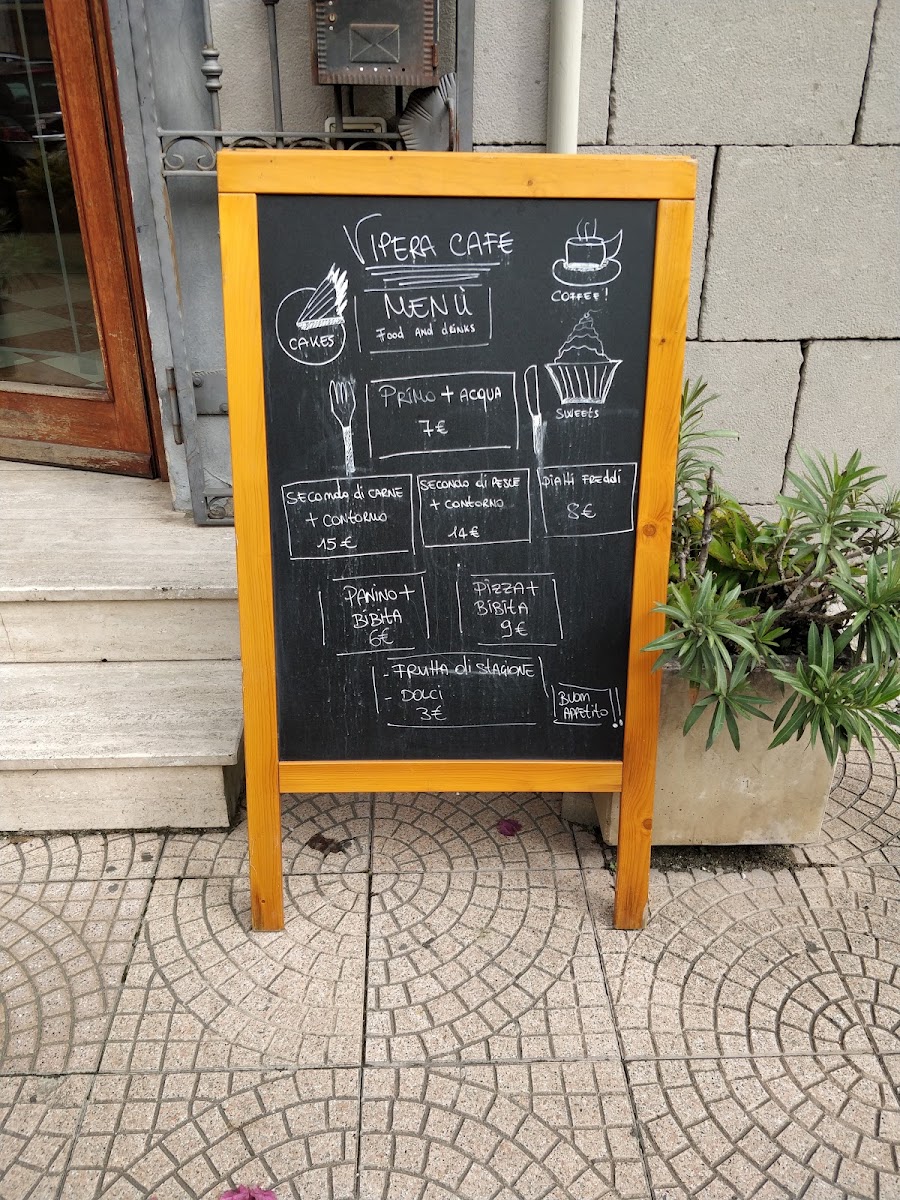 VIPERA CAFE
MENÙ
Food AND dRiNKS
CAKES
COFFEE!
SWEEtS
PRIMO + ACQUA
7€
SECONDO di CARNE
+ CONTORNO
15€
SECONDO di PESCE
+ CONTORNO
14€
PIATTI FREDDI
8€
PANINO +
BIBITA
6€
PIZZA +
BIBITA
9€
- FRUTTA di STAGIONE
- DOLCI
3€
BUON
APPETITO!!